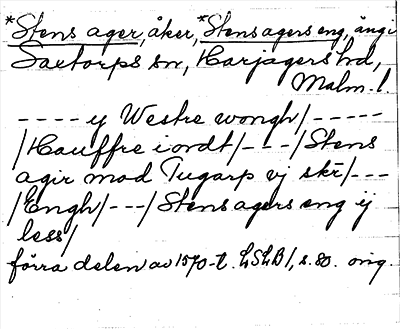 *Stens ager, åker, *Stensagers eng, äng i
Saxtorps sn, Harjagers hd,
Malm. l.
---- y Westre wongh/-----
/Hauffre iordt/---/Stens
agir mod Tugarp vj skr/---
/Engh/---/Stensagers eng ij
less/
förra delen av 1570-t. LSLB1, s. 80. orig.